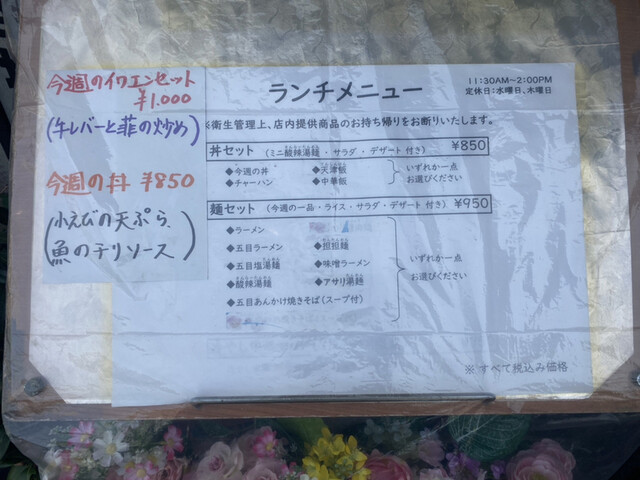 今週のイワエンセット
¥1.000
(牛レバーと韮の炒め)
今週の丼 ¥850
(小えびの天ぷら、
魚のチリソース)
ランチメニュー
11:30AM～2:00PM
定休日:水曜日、木曜日
※衛生管理上、店内提供商品のお持ち帰りをお断りいたします。
丼セット (ミニ酸辣湯麺・サラダ・デザート付き) ¥850
◆今週の丼 ◆天津飯
◆チャーハン ◆中華飯
いずれか一点
お選びください
麺セット (今週の一品・ライス・サラダ・デザート付き) ¥950
◆ラーメン
◆五目ラーメン ◆担担麺
◆五目塩湯麺 ◆味噌ラーメン
◆酸辣湯麺 ◆アサリ湯麺
◆五目あんかけ焼きそば(スープ付)
いずれか一点
お選びください
※すべて税込み価格